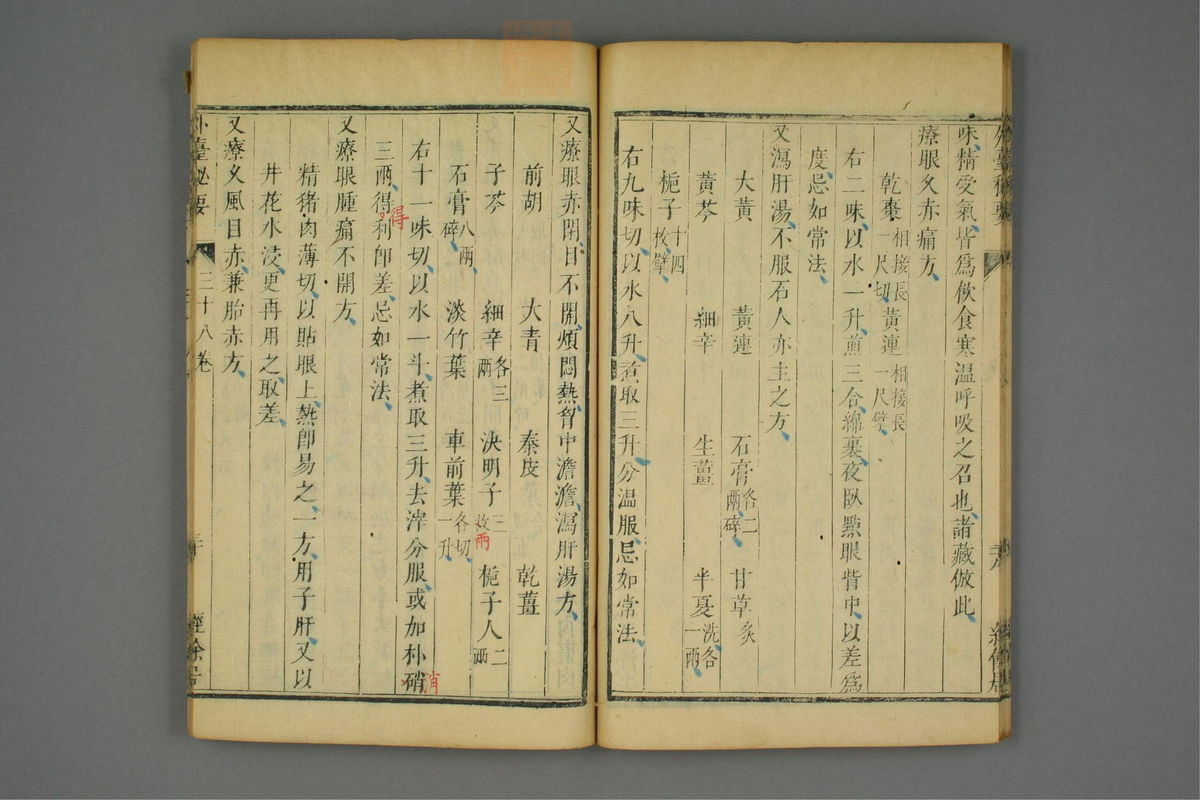 味精愛氣皆爲飲食寒温呼吸之召也諸藏倣此
療眼久赤痛方
乾棗一尺切相接長黃連一尺擘相接長
右二味以水一升煎三合綿裹夜臥點眼眥中以差爲
度忌如常法
又瀉肝湯不服石人亦主之方
大黃 黃連 石膏各二兩碎 甘草炙
黃芩 細辛 生薑 半夏洗各一兩
梔子十四枚擘
右九味切以水八升煮取三升分温服忌如常法
又療眼赤閉目不開煩悶熱胷中澹澹瀉肝湯方
前胡 大青 秦皮 乾薑
子芩 細辛各三兩 決明子三枚 梔子人二兩
兩
石膏八兩碎 淡竹葉 車前葉各切一升
右十一味切以水一斗煮取三升去滓分服或加朴硝
消
三兩得利卽差忌如常法
得
又療眼腫痛不開方
精猪肉薄切以貼眼上熱卽易之一方用子肝又以
井花水浸更再用之取差
又療久風目赤兼胎赤方
外臺祕要 三十八卷 經餘居